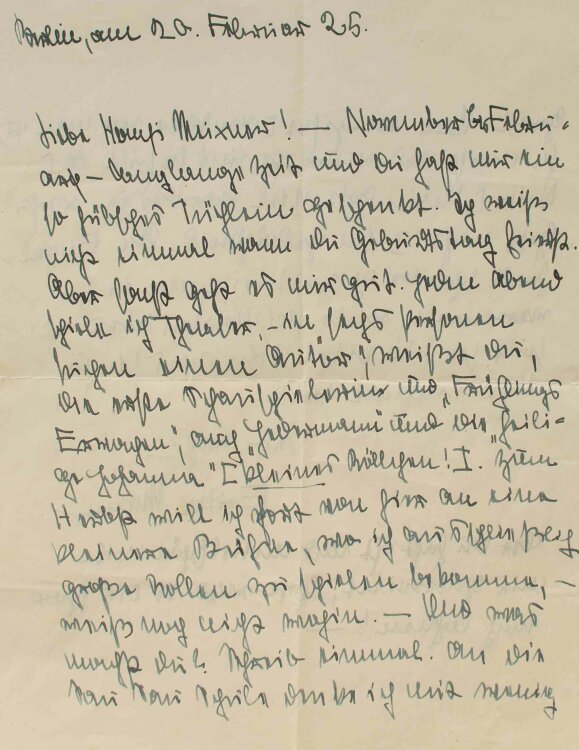 Berlin, am 20. Februar 25.
Liebe Hansi Meixner! — November bis Febru-
ary — langlange Zeit und du hast mir ein
so hübsches Tüchlein geschenkt. Ich weiß
nicht einmal wann du Geburtstag feierst.
Aber sonst geht es mir gut. Jeden Abend
spiele ich Theater, – in „sechs Personen
suchen einen Autor", weißt du,
die erste Schauspielerin und „Frühlings
Erwachen", auch „Jedermann" und die „Heili-
ge Johanna" [kleines Röllchen!]. Zum
Herbst will ich fort von hier an eine
kleinere Bühne, wo ich ausschließlich
große Rollen zu spielen bekomme, –
weiß noch nicht wohin. — Und was
machst du? Schreib einmal. An die
Schule denke ich mit wenig